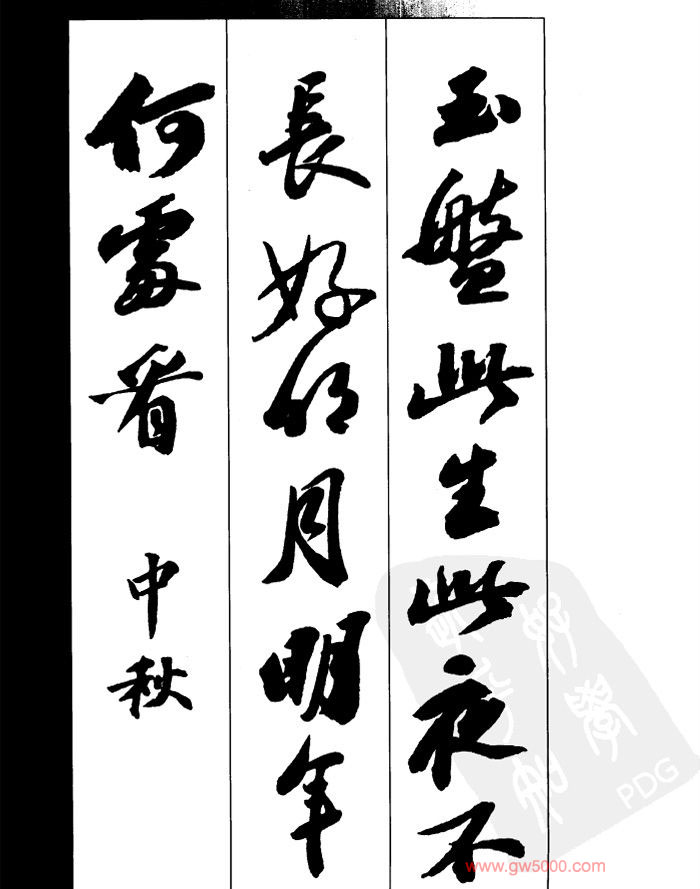 玉盤此生此夜不
長好明月明年
何處看
中秋
PDG
www.gw5000.com